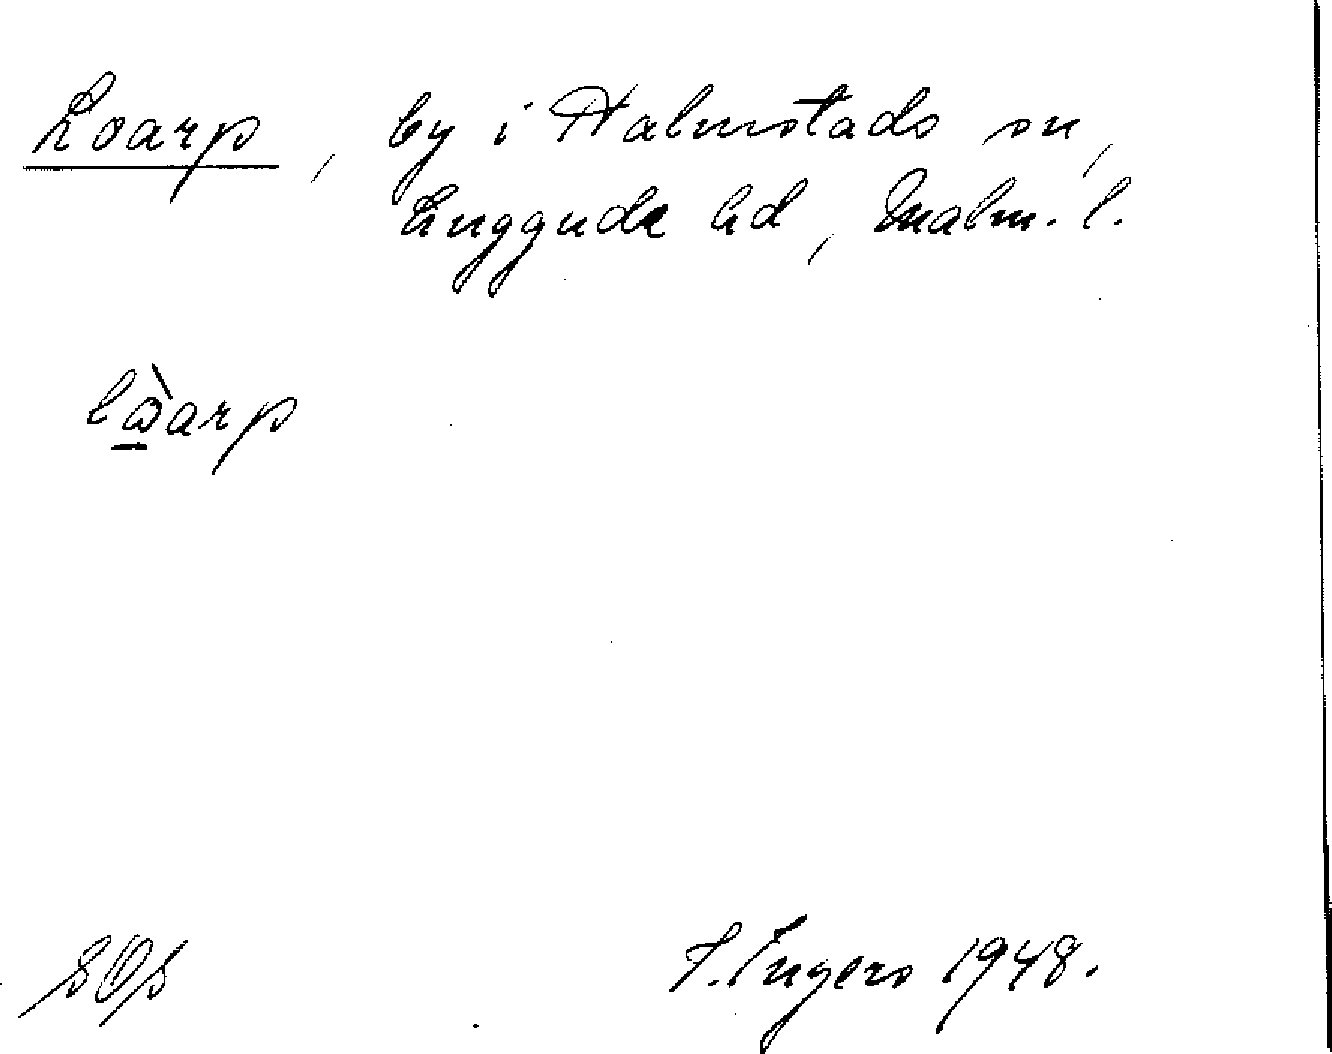 Loarp, by i Halmstads sn,
Luggude hd, Malm. l.
lòarp
SOS
I. Ingers 1948.